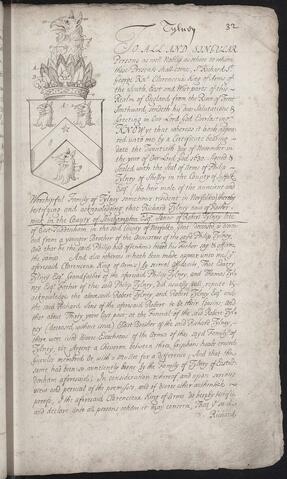 Tylney 32
TO ALL AND SINGULAR
Persons as well Nobles as others to whom
these Presents shall come, Sr Richard St
George Knt Clarenceux King of Arms of
the South, East and West parts of this
Realm of England from the River of Trent
Southward, sendeth his due Salutations &
Greeting in our Lord God Everlasting.
KNOW ye that whereas it hath appeared
unto me by a Certificate bearing
date the Twentieth day of November in
the year of Our Lord God 1630. Signed &
Sealed with the Seal of Arms of Philip
Tylney of Shelley in the County of Suffolk
Esqr the heir male of the ancient and
Worshipful Family of Tylney sometimes resident in Norfolk thereby
testifying and acknowledging that Richard Tylney of
in the County of Southampton Esqr Sonne of Robert Tylney late
of East Tuddenham, in the said County of Norfolk, Gent
from a younger Brother of the Ancestors of the said Philip Tylney
and that he the said Philip had oftentimes heard his Father say & affirm
the same. And also whereas it hath been made appear unto me
aforesaid Clarenceux King of Arms by several Affidavits, That
Tylney Esqr Grandfather of the aforesaid Philip Tylney, and Thomas Tylney
Esqr Father of the said Philip Tylney, did usually call, repute &
acknowledge the abovesaid Robert Tylney and Robert Tylney Son and
the said Richard Sons of the aforesaid Robert to be their Cousins, and
that about Thirty years last past at the Funeral of the said Robert Tylney
(deceased, without issue) Eldest Brother of the said Richard Tylney,
there were used divers Escutcheons of the Arms of this said Family of
Tylney, viz Argent a Cheveron between three Gryphons heads erased
Gules with a Mullet for a Difference; And that the
same had been so anciently borne by the Family of Tylney of East
aforesaid; In consideration whereof and upon serious
view and perusal of the premisses, and of divers other authentick
proofs, I the aforesaid Clarenceux King of Arms do hereby
and declare unto all persons whom it may concern, That I
Richard